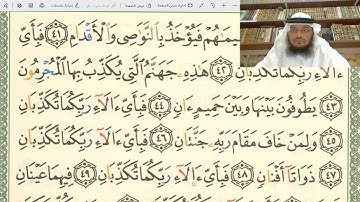 يمَٰهُمْ فَيُؤْخَذُ بِٱلنَّوَٰصِى وَٱلْأَقْدَامِ ٤١ فَبِأَىِّ
ءَالَآءِ رَبِّكُمَا تُكَذِّبَانِ ٤٢ هَٰذِهِۦ جَهَنَّمُ ٱلَّتِى يُكَذِّبُ بِهَا ٱلْمُجْرِمُونَ
٤٣ يَطُوفُونَ بَيْنَهَا وَبَيْنَ حَمِيمٍ ءَانٍ ٤٤ فَبِأَىِّ ءَالَآءِ رَبِّكُمَا تُكَذِّبَانِ
٤٥ وَلِمَنْ خَافَ مَقَامَ رَبِّهِۦ جَنَّتَانِ ٤٦ فَبِأَىِّ ءَالَآءِ رَبِّكُمَا تُكَذِّبَانِ
٤٧ ذَوَاتَآ أَفْنَانٍ ٤٨ فَبِأَىِّ ءَالَآءِ رَبِّكُمَا تُكَذِّبَانِ ٤٩ فِيهِمَا عَيْنَانِ